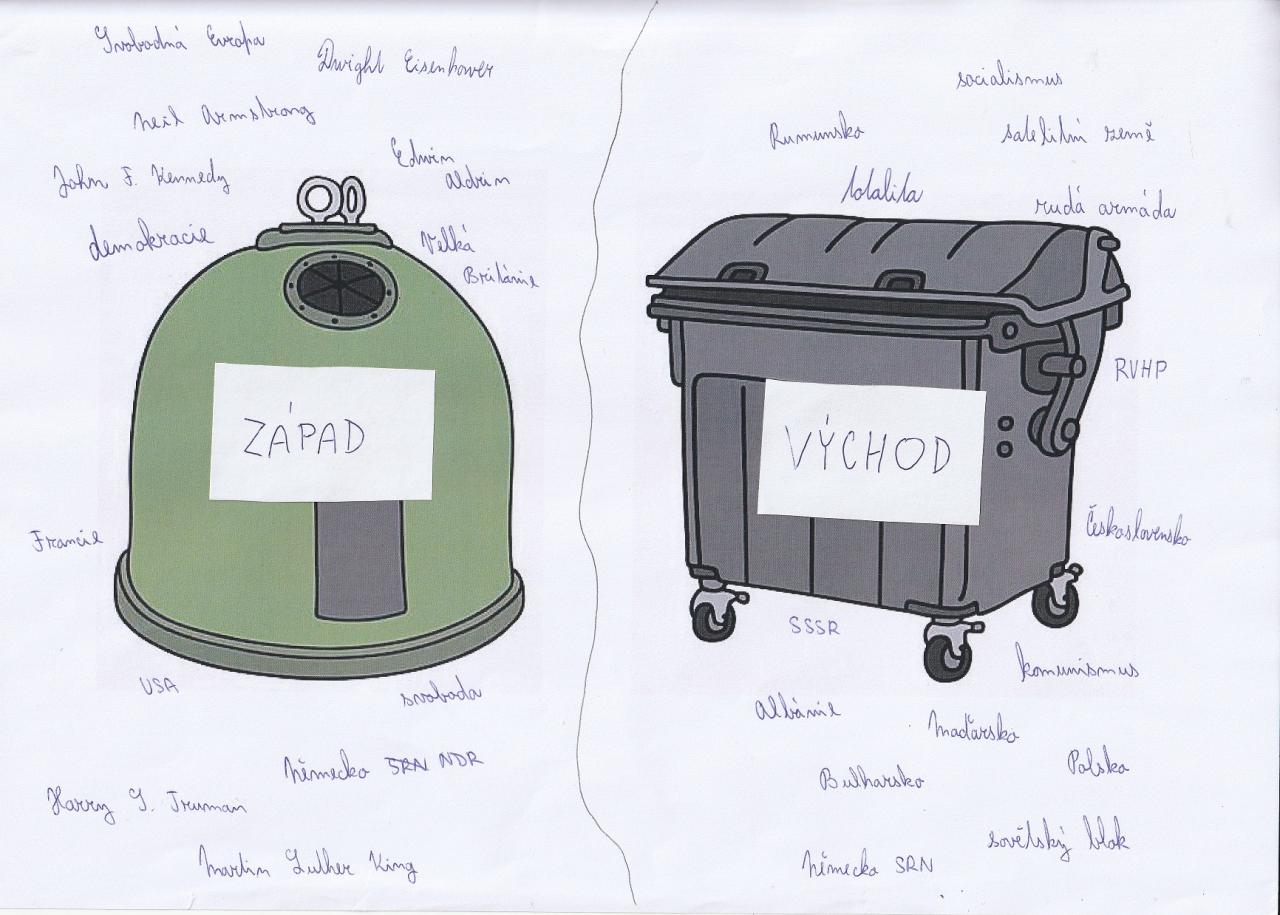 Svobodná Evropa
Dwight Eisenhower
Neil Armstrong
John F. Kennedy
Edwin
Aldrin
demokracie
Velká
Británie
ZÁPAD
Francie
USA
svoboda
Německo SRN NDR
Harry S. Truman
Martin Luther King
socialismus
Rumunsko
satelitní země
totalita
rudá armáda
RVHP
VÝCHOD
Československo
SSSR
komunismus
Albánie
Maďarsko
Polsko
Bulharsko
sovětský blok
Německo SRN